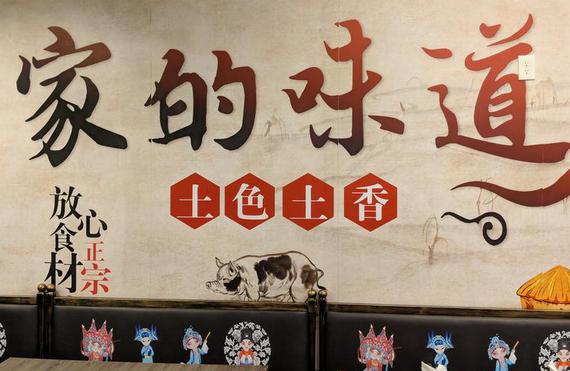 家的味道
土色土香
放心
食正
材宗